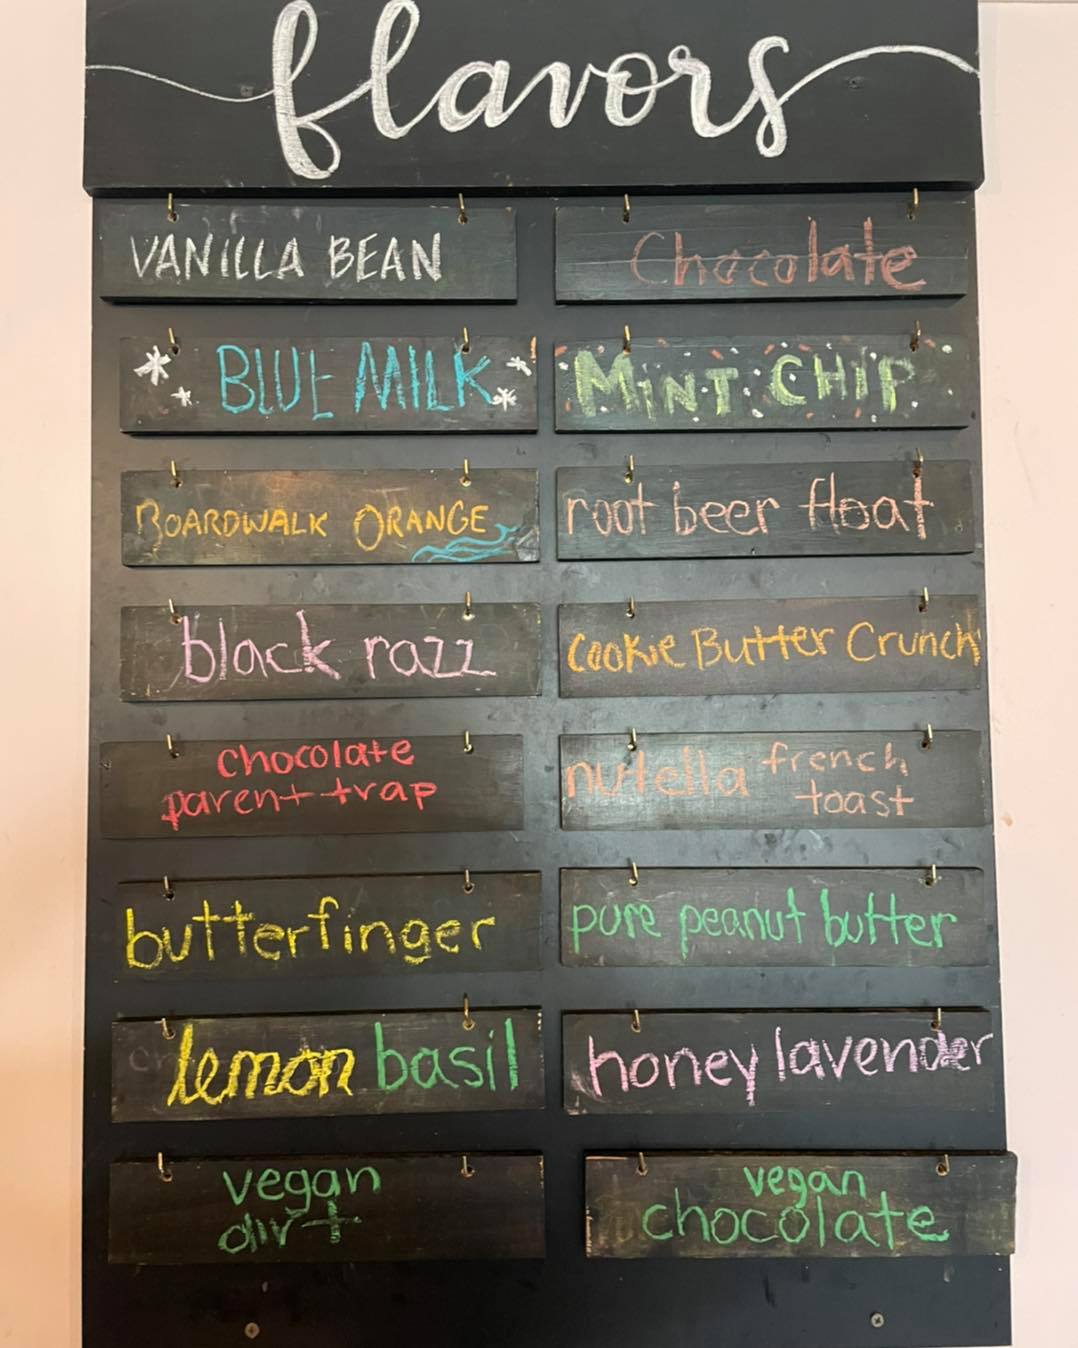 flavors
VANILLA BEAN
Chocolate
BLUE MILK
MINT CHIP
BOARDWALK ORANGE
root beer float
black razz
cookie Butter Crunch
chocolate
parent trap
nutella french
toast
butterfinger
pure peanut butter
lemon basil
honey lavender
vegan
dirt
vegan
chocolate